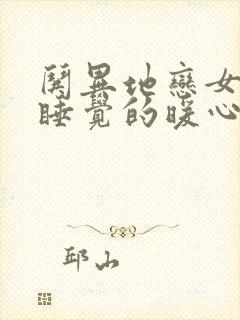 闋異地戀女
睡覺的暖心
邱山